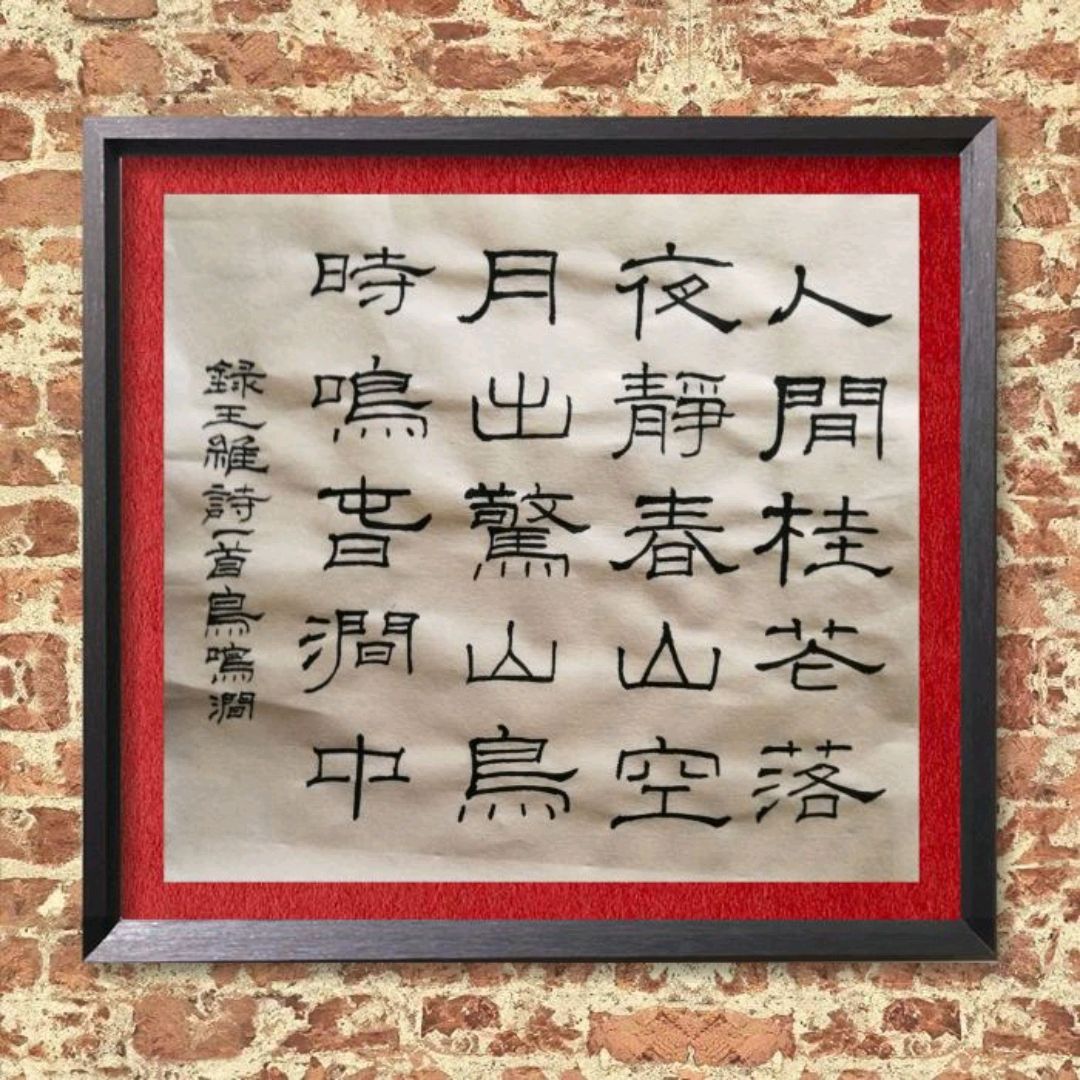 人間桂花落
夜靜春山空
月出驚山鳥
時鳴旾澗中
録王維詩一首鳥鳴澗